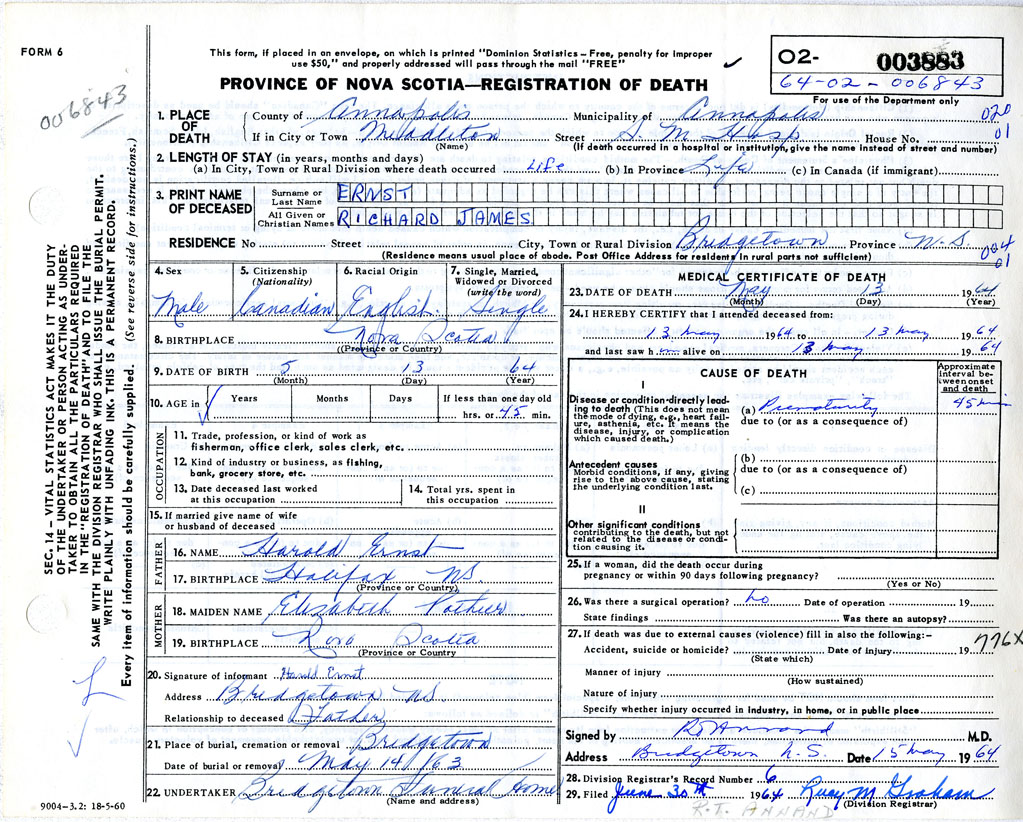 FORM 6
This form, if placed in an envelope, on which is printed "Dominion Statistics – Free, penalty for improper
use $50," and properly addressed will pass through the mail "FREE"
PROVINCE OF NOVA SCOTIA—REGISTRATION OF DEATH
02- 003883
64-02-006843
For use of the Department only
006843
SEC. 14 – VITAL STATISTICS ACT MAKES IT THE DUTY
OF THE UNDERTAKER OR PERSON ACTING AS UNDER-
TAKER TO OBTAIN ALL THE PARTICULARS REQUIRED
IN THE "REGISTRATION OF DEATH" AND TO FILE THE
SAME WITH THE DIVISION REGISTRAR WHO SHALL ISSUE THE BURIAL PERMIT.
WRITE PLAINLY WITH UNFADING INK. THIS IS A PERMANENT RECORD.
Every item of information should be carefully supplied. (See reverse side for instructions.)
1. PLACE OF DEATH
County of Annapolis Municipality of Annapolis 020
If in City or Town Middleton Street S. M. Hosp House No. 01
(Name) (If death occurred in a hospital or institution, give the name instead of street and number)
2. LENGTH OF STAY (in years, months and days)
(a) In City, Town or Rural Division where death occurred Life (b) In Province Life (c) In Canada (if immigrant)
3. PRINT NAME OF DECEASED
Surname or Last Name ERNST
All Given or Christian Names RICHARD JAMES
RESIDENCE No Street City, Town or Rural Division Bridgetown Province N.S. 004
01
(Residence means usual place of abode. Post Office Address for residents in rural parts not sufficient)
4. Sex 5. Citizenship (Nationality) 6. Racial Origin 7. Single, Married, Widowed or Divorced (write the word)
Male Canadian English Single
8. BIRTHPLACE Nova Scotia
(Province or Country)
9. DATE OF BIRTH 5 13 64
(Month) (Day) (Year)
10. AGE in Years Months Days If less than one day old
hrs. or 45 min.
OCCUPATION
11. Trade, profession, or kind of work as
fisherman, office clerk, sales clerk, etc.
12. Kind of industry or business, as fishing,
bank, grocery store, etc.
13. Date deceased last worked
at this occupation
14. Total yrs. spent in
this occupation
15. If married give name of wife
or husband of deceased
FATHER
16. NAME Harold Ernst
17. BIRTHPLACE Halifax NS.
(Province or Country)
MOTHER
18. MAIDEN NAME Elizabeth Pothier
19. BIRTHPLACE Nova Scotia
(Province or Country
20. Signature of informant Harold Ernst
Address Bridgetown NS
Relationship to deceased Father
21. Place of burial, cremation or removal Bridgetown
Date of burial or removal May 14 / 63
22. UNDERTAKER Bridgetown Funeral Home
(Name and address)
9004-3.2: 18-5-60
MEDICAL CERTIFICATE OF DEATH
23. DATE OF DEATH May 13 1964
(Month) (Day) (Year)
24. I HEREBY CERTIFY that I attended deceased from:
13 May 1964 to 13 May 1964
and last saw h im alive on 13 May 1964
CAUSE OF DEATH
Approximate interval between onset and death
I
Disease or condition directly lead-
ing to death (This does not mean
the mode of dying, e.g., heart fail-
ure, asthenia, etc. It means the
disease, injury, or complication
which caused death.)
(a) Prematurity 45 min
due to (or as a consequence of)
Antecedent causes
Morbid conditions, if any, giving
rise to the above cause, stating
the underlying condition last.
(b)
due to (or as a consequence of)
(c)
II
Other significant conditions
contributing to the death, but not
related to the disease or condi-
tion causing it.
25. If a woman, did the death occur during
pregnancy or within 90 days following pregnancy?
(Yes or No)
26. Was there a surgical operation? no Date of operation 19
State findings Was there an autopsy?
27. If death was due to external causes (violence) fill in also the following:–
Accident, suicide or homicide? Date of injury 19 776X
(State which)
Manner of injury
(How sustained)
Nature of injury
Specify whether injury occurred in industry, in home, or in public place
Signed by R T Annand M.D.
Address Bridgetown N.S. Date 15 May 1964
28. Division Registrar's Record Number 6
29. Filed June 30th 1964 Ruby M Graham
(Division Registrar)
R.T. ANNAND